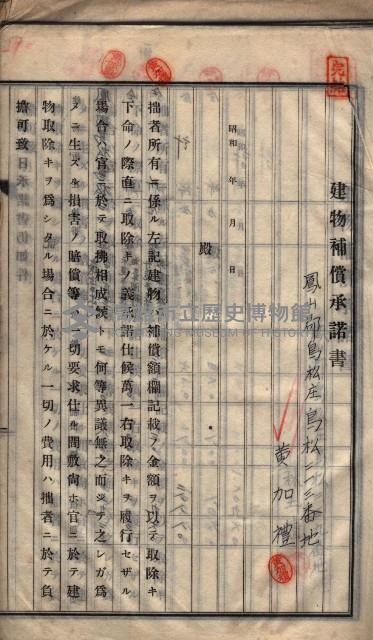 建物補償承諾書
鳳山郡鳥松庄鳥松二三番地
黄加禮
昭和 年 月 日
殿
拙者所有ニ係ル左記建物ハ補償額欄記載ノ金額ヲ以テ取除キ
下命ノ際直ニ取除キノ義承諾仕候萬一右取除キヲ履行セザル
場合ハ官ニ於テ取拂相成候トモ何等異議無之而シテ之レガ爲
メニ生ズル損害ノ賠償等ハ一切要求仕ル間敷尚ホ官ニ於テ建
物取除キヲ爲シタル場合ニ於ケル一切ノ費用ハ拙者ニ於テ負
擔可致
高雄市立歷史博物館